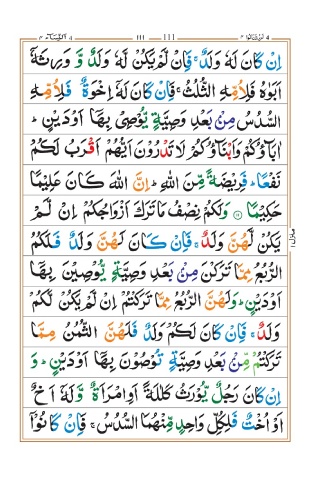 لن تنالوا ٤ ١١١ النسآء ٤
اِنْ كَانَ لَهٗ وَلَدٌ ۚ فَاِنْ لَّمْ يَكُنْ لَّهٗ وَلَدٌ وَّ وَرِثَهٗۤ
اَبَوٰهُ فَلِاُمِّهِ الثُّلُثُ ۚ فَاِنْ كَانَ لَهٗۤ اِخْوَةٌ فَلِاُمِّهِ
السُّدُسُ مِنْۢ بَعْدِ وَصِيَّةٍ يُّوْصِيْ بِهَاۤ اَوْ دَيْنٍ ؕ
اٰبَآؤُكُمْ وَاَبْنَآؤُكُمْ لَا تَدْرُوْنَ اَيُّهُمْ اَقْرَبُ لَكُمْ
نَفْعًا ؕ فَرِيْضَةً مِّنَ اللّٰهِ ؕ اِنَّ اللّٰهَ كَانَ عَلِيْمًا
حَكِيْمًا ۝ وَلَكُمْ نِصْفُ مَا تَرَكَ اَزْوَاجُكُمْ اِنْ لَّمْ
يَكُنْ لَّهُنَّ وَلَدٌ ۚ فَاِنْ كَانَ لَهُنَّ وَلَدٌ فَلَكُمُ
الرُّبُعُ مِمَّا تَرَكْنَ مِنْۢ بَعْدِ وَصِيَّةٍ يُّوْصِيْنَ بِهَاۤ
اَوْ دَيْنٍ ؕ وَلَهُنَّ الرُّبُعُ مِمَّا تَرَكْتُمْ اِنْ لَّمْ يَكُنْ لَّكُمْ
وَلَدٌ ۚ فَاِنْ كَانَ لَكُمْ وَلَدٌ فَلَهُنَّ الثُّمُنُ مِمَّا
تَرَكْتُمْ مِّنْۢ بَعْدِ وَصِيَّةٍ تُوْصُوْنَ بِهَاۤ اَوْ دَيْنٍ ؕ وَ
اِنْ كَانَ رَجُلٌ يُّوْرَثُ كَلٰلَةً اَوِ امْرَاَةٌ وَّ لَهٗۤ اَخٌ
اَوْ اُخْتٌ فَلِكُلِّ وَاحِدٍ مِّنْهُمَا السُّدُسُ ۚ فَاِنْ كَانُوْۤا
منزل ١